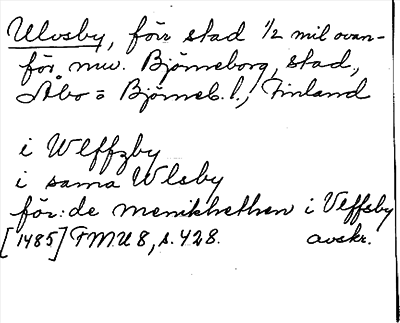 Ulvsby, förr stad 1/2 mil ovan-
för nuv. Björneborg, stad,
Åbo = Björneb. l., Finland
i Wlffzby
i sama Wlsby
för:de menikhethen i Vlffsby
[1485] FMU 8, s. 428. avskr.